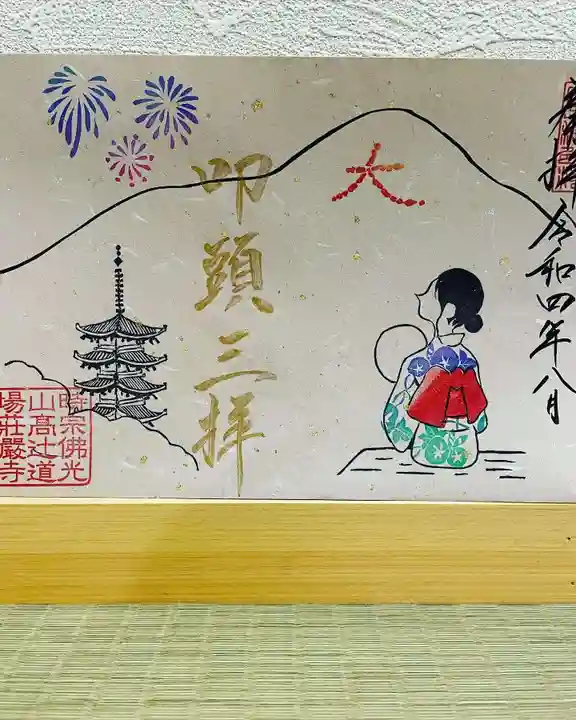 奉拝
令和四年八月
大
叩頭三拝
時宗佛光
山高辻道
場荘嚴寺